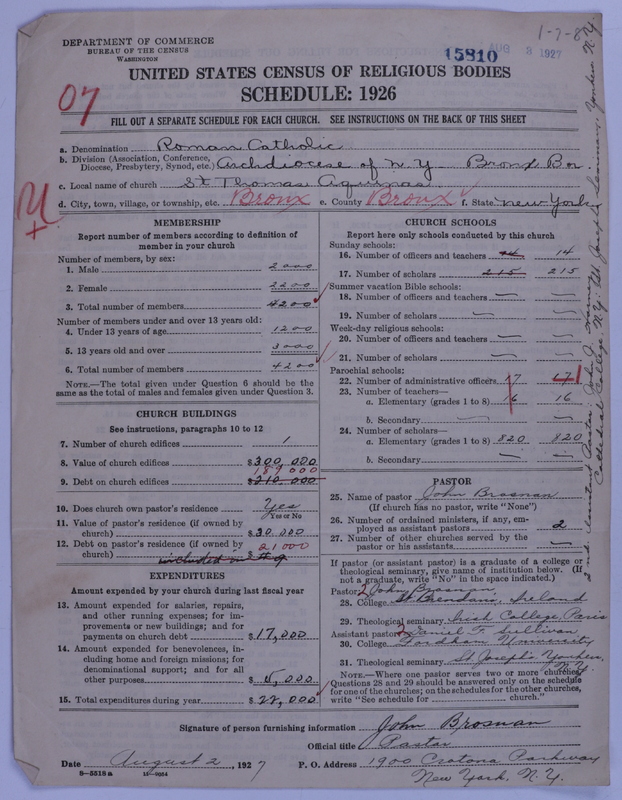 DEPARTMENT OF COMMERCE
BUREAU OF THE CENSUS
WASHINGTON
1-7-8
15810
AUG 3 1927
UNITED STATES CENSUS OF RELIGIOUS BODIES
SCHEDULE: 1926
07
FILL OUT A SEPARATE SCHEDULE FOR EACH CHURCH. SEE INSTRUCTIONS ON THE BACK OF THIS SHEET
a. Denomination Roman Catholic
b. Division (Association, Conference, Diocese, Presbytery, Synod, etc.) Archdiocese of N.Y. Bronx Bor.
c. Local name of church St Thomas Aquinas
d. City, town, village, or township, etc. Bronx e. County Bronx f. State New York
MEMBERSHIP
Report number of members according to definition of
member in your church
Number of members, by sex:
1. Male 2000
2. Female 2200
3. Total number of members 4200
Number of members under and over 13 years old:
4. Under 13 years of age 1200
5. 13 years old and over 3000
6. Total number of members 4200
NOTE.—The total given under Question 6 should be the
same as the total of males and females given under Question 3.
CHURCH BUILDINGS
See instructions, paragraphs 10 to 12
7. Number of church edifices 1
8. Value of church edifices $300,000
189000
9. Debt on church edifices $210,000
10. Does church own pastor's residence Yes
Yes or No
11. Value of pastor's residence (if owned by
church) $30,000
12. Debt on pastor's residence (if owned by
church) 21000
included in #9
EXPENDITURES
Amount expended by your church during last fiscal year
13. Amount expended for salaries, repairs,
and other running expenses; for im-
provements or new buildings; and for
payments on church debt $17,000
14. Amount expended for benevolences, in-
cluding home and foreign missions; for
denominational support; and for all
other purposes $5,000
15. Total expenditures during year $22,000
CHURCH SCHOOLS
Report here only schools conducted by this church
Sunday schools:
16. Number of officers and teachers 14 14
17. Number of scholars 215 215
Summer vacation Bible schools:
18. Number of officers and teachers — —
19. Number of scholars — —
Week-day religious schools:
20. Number of officers and teachers — —
21. Number of scholars — —
Parochial schools:
22. Number of administrative officers 17 17 1
23. Number of teachers—
a. Elementary (grades 1 to 8) 16 16
b. Secondary — —
24. Number of scholars—
a. Elementary (grades 1 to 8) 820 820
b. Secondary — —
PASTOR
25. Name of pastor John Brosnan
(If church has no pastor, write "None")
26. Number of ordained ministers, if any, em-
ployed as assistant pastors 2
27. Number of other churches served by the
pastor or his assistants —
If pastor (or assistant pastor) is a graduate of a college or
theological seminary, give name of institution below. (If
not a graduate, write "No" in the space indicated.)
Pastor: John Brosnan
28. College St Brendans, Ireland
29. Theological seminary Irish College, Paris
Assistant pastor: Daniel F. Sullivan
30. College Fordham University
31. Theological seminary St Joseph's Yonkers, N.Y.
NOTE.—Where one pastor serves two or more churches,
Questions 28 and 29 should be answered only on the schedule
for one of the churches; on the schedules for the other churches,
write "See schedule for church."
Signature of person furnishing information John Brosnan
Official title Pastor
Date August 2, 1927 P. O. Address 1900 Crotona Parkway
New York, N.Y.
8-5518a
2nd Assistant Pastor John J.
Cathedral College N.Y. St Joseph's Seminary, Yonkers N.Y.